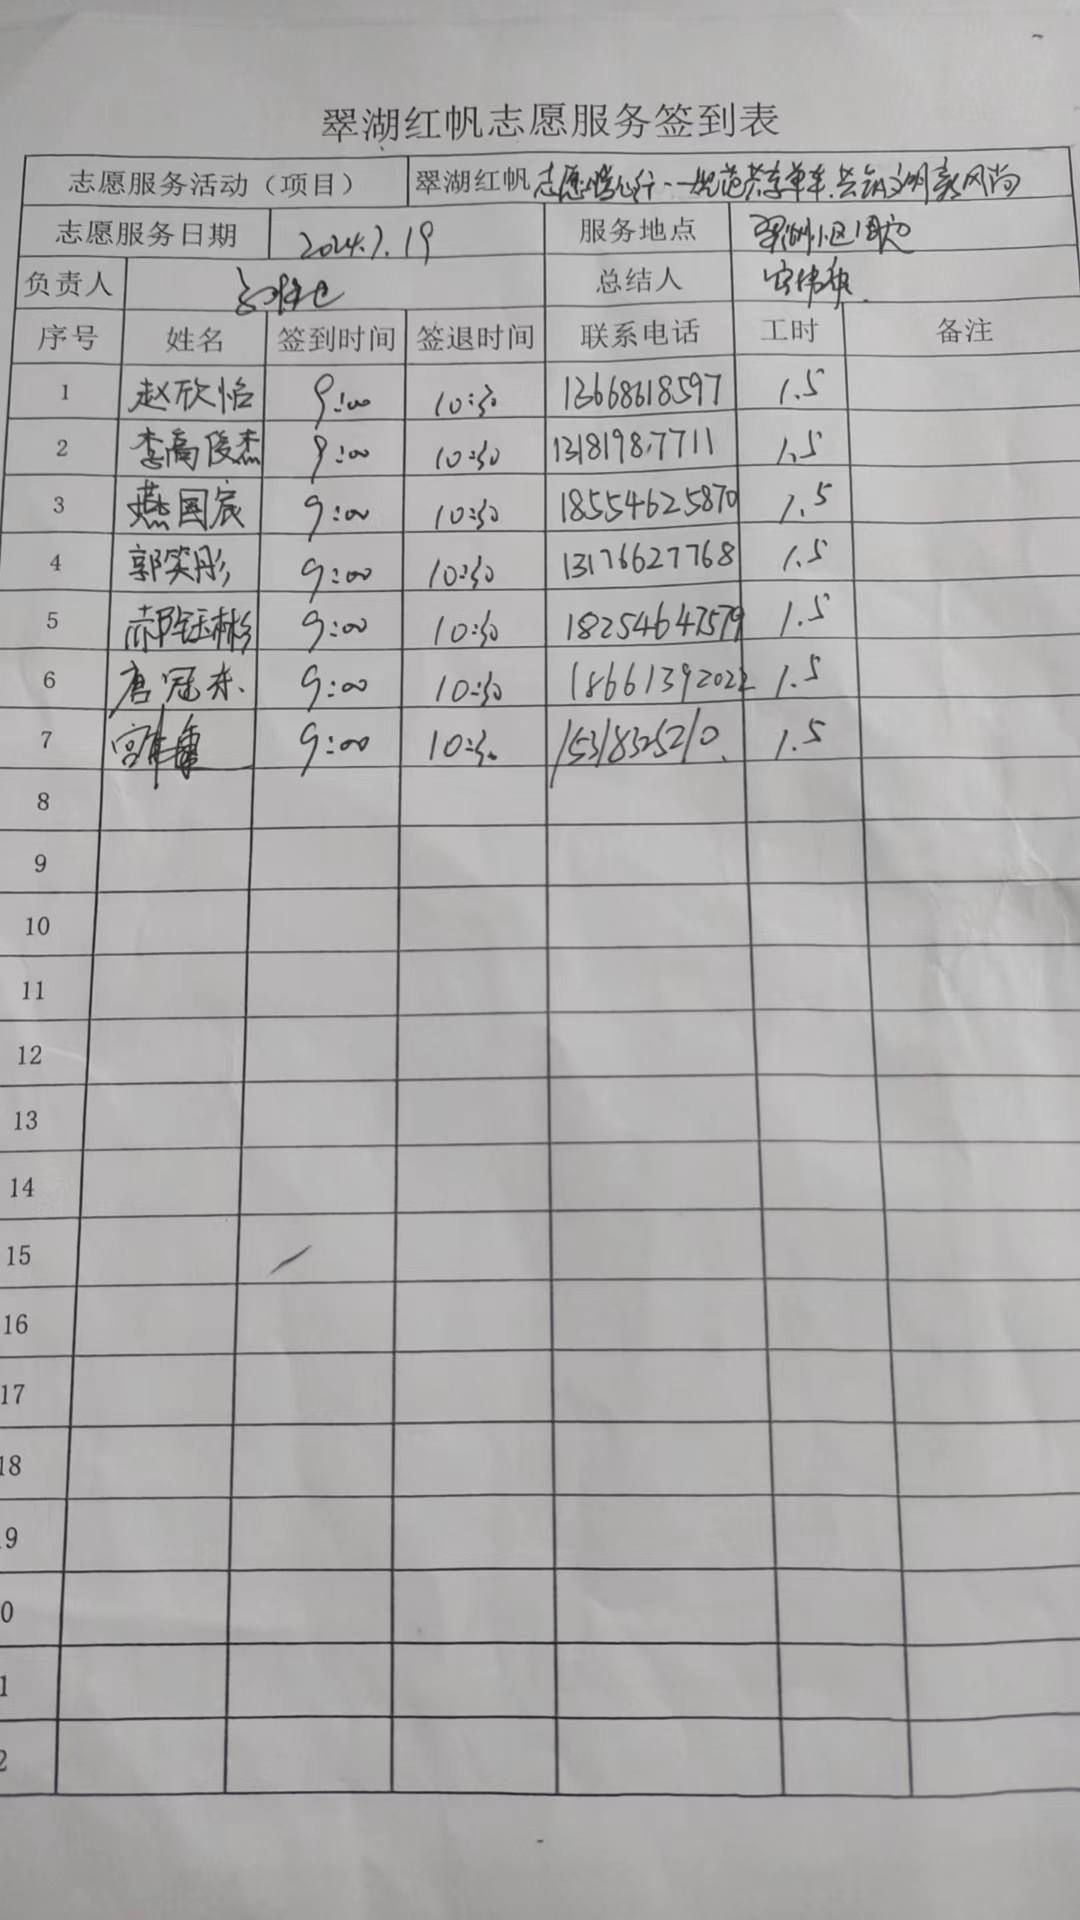 翠湖红帆志愿服务签到表
志愿服务活动（项目） 翠湖红帆志愿 行--规范共享单车.共 文明新风尚
志愿服务日期 2024.7.19 服务地点 翠湖小区周边
负责人 总结人
序号 姓名 签到时间 签退时间 联系电话 工时 备注
1 赵欣怡 9:00 10:30 13668618597 1.5
2 李高俊杰 9:00 10:30 13181987711 1.5
3 燕国宸 9:00 10:30 18554625870 1.5
4 郭笑彤 9:00 10:30 13176627768 1.5
5 郝钰彬 9:00 10:30 18254647579 1.5
6 唐冠东 9:00 10:30 18661392022 1.5
7 9:00 10:30 15318325210 1.5
8
9
10
11
12
13
14
15
16
17
18
9
0
1
2